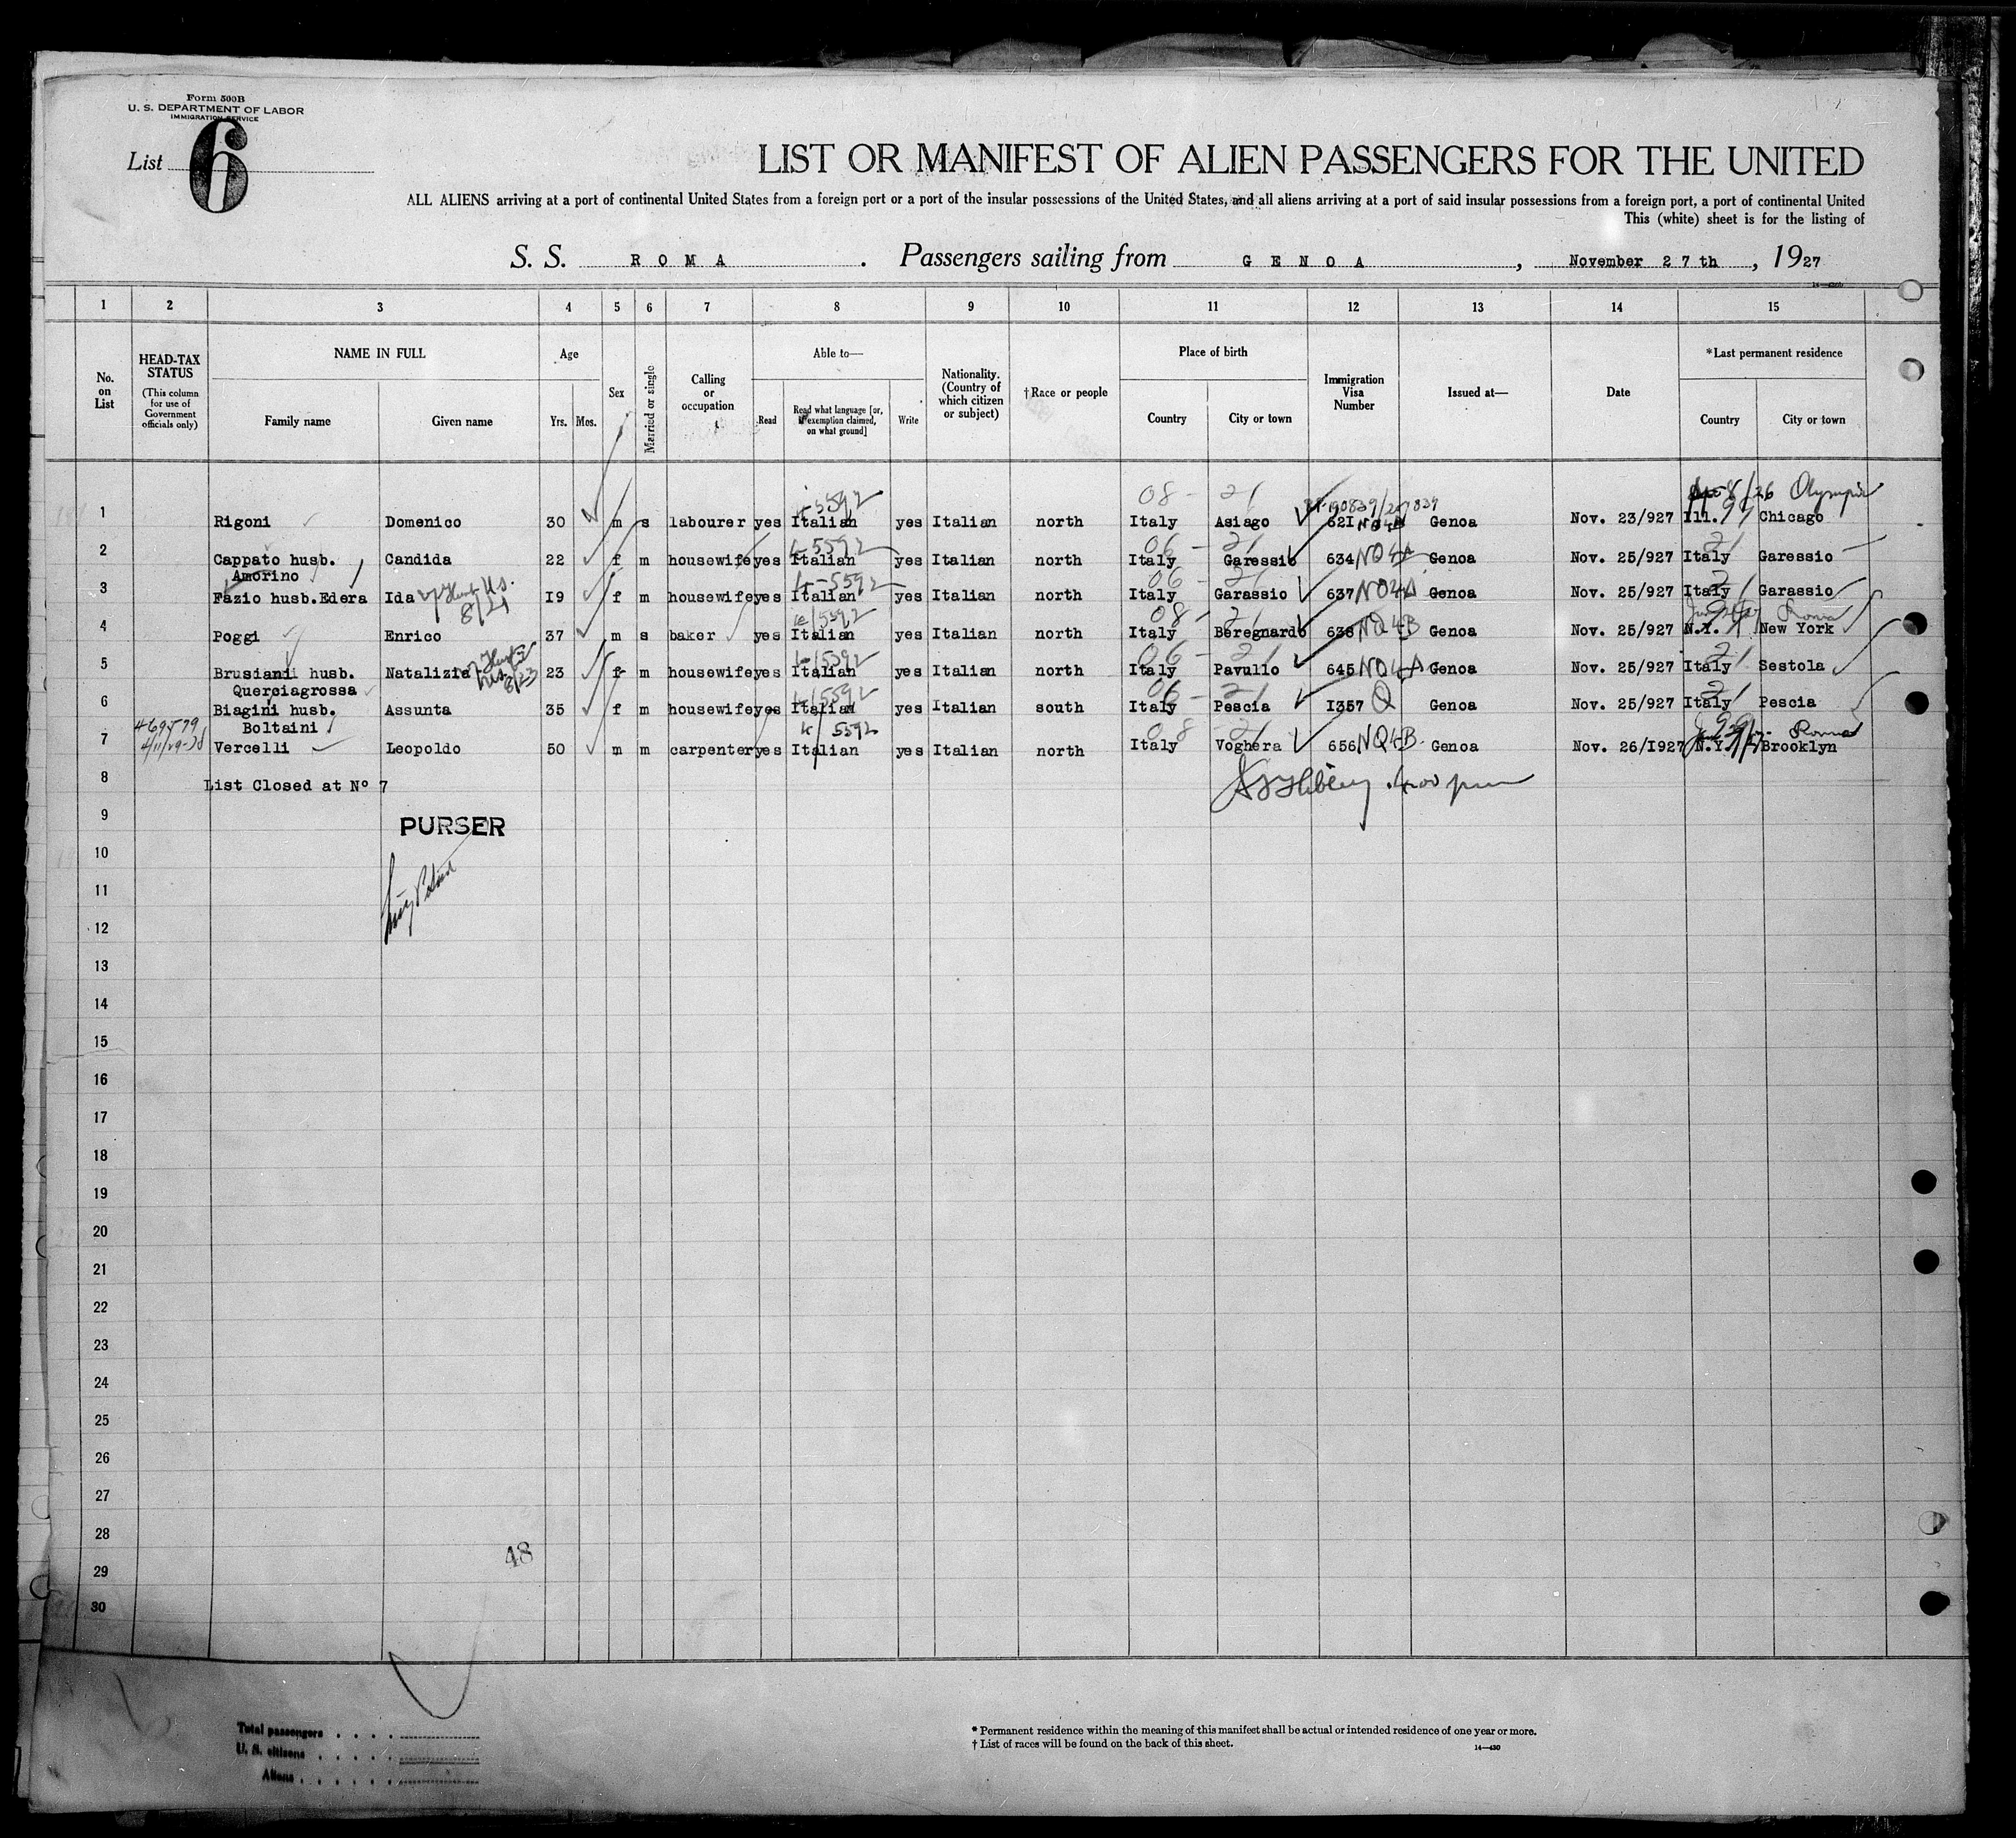 Form 500B
U. S. DEPARTMENT OF LABOR
IMMIGRATION SERVICE
List 6
LIST OR MANIFEST OF ALIEN PASSENGERS FOR THE UNITED
ALL ALIENS arriving at a port of continental United States from a foreign port or a port of the insular possessions of the United States, and all aliens arriving at a port of said insular possessions from a foreign port, a port of continental United
This (white) sheet is for the listing of
S. S. ROMA. Passengers sailing from GENOA, November 27th, 1927
1 2 3 4 5 6 7 8 9 10 11 12 13 14 15
No. on List
HEAD-TAX STATUS
(This column for use of Government officials only)
NAME IN FULL
Family name Given name
Age
Yrs. Mos.
Sex
Married or single
Calling or occupation
Able to—
Read
Read what language [or, if exemption claimed, on what ground]
Write
Nationality. (Country of which citizen or subject)
†Race or people
Place of birth
Country City or town
Immigration Visa Number
Issued at—
Date
*Last permanent residence
Country City or town
08 - 21 8/26 Olympic
1 Rigoni Domenico 30 m s labourer yes Italian yes Italian north Italy Asiago 521 Genoa Nov. 23/927 Ill. Chicago
2 Cappato husb. Candida 22 f m housewife yes Italian yes Italian north Italy Garessio 634 NQ4A Genoa Nov. 25/927 Italy Garessio
Amorino
3 Fazio husb.Edera Ida 19 f m housewife yes Italian yes Italian north Italy Garassio 637 NQ4A Genoa Nov. 25/927 Italy Garassio
4 Poggi Enrico 37 m s baker yes Italian yes Italian north Italy Beregnardo 638 NQ4B Genoa Nov. 25/927 N.Y. New York
5 Brusiani husb. Natalizia 23 f m housewife yes Italian yes Italian north Italy Pavullo 645 NQ4A Genoa Nov. 25/927 Italy Sestola
Querciagrossa
6 Biagini husb. Assunta 35 f m housewife yes Italian yes Italian south Italy Pescia I357 Q Genoa Nov. 25/927 Italy Pescia
Boltaini
7 Vercelli Leopoldo 50 m m carpenter yes Italian yes Italian north Italy Voghera 656 NQ4B Genoa Nov. 26/I927 N.Y. Brooklyn
8 List Closed at Nº 7
9 PURSER
10
11
12
13
14
15
16
17
18
19
20
21
22
23
24
25
26
27
28
48
29
30
Total passengers
U. S. citizens
Aliens
* Permanent residence within the meaning of this manifest shall be actual or intended residence of one year or more.
† List of races will be found on the back of this sheet.
14—430